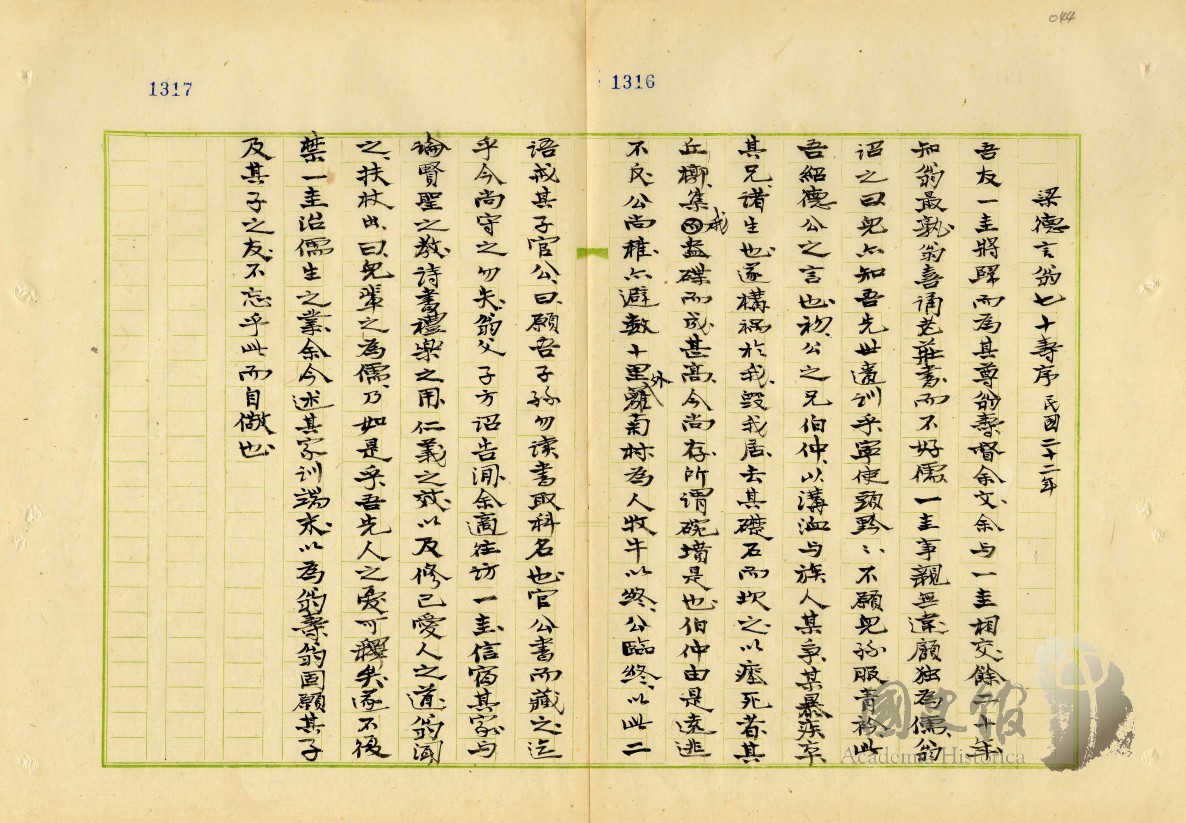 044
1316
1317
梁德言翁七十壽序 民國二十二年
吾友一圭將歸而為其尊翁壽督余文余与一圭相交餘二十年
知翁最孰翁喜誦老莊書而不好儒一圭事親無違顧独為儒翁
詔之曰兒亦知吾先世遺訓乎寧使頭黔〻不願兒孫服青衿此
吾紹德公之言也初公之兄伯仲以溝洫与族人某爭某暴疾卒
其兄諸生也遂構禍於我毀我居去其礎石而坎之以瘞死者其
丘櫬集我盌碟而成甚高今尚存所謂碗墳是也伯仲由是遠逃
不反公尚稚亦避數十里外南村為人牧牛以終公臨終以此二
語戒其子官公曰願吾子孫勿读書取科名也官公書而藏之迄
乎今尚守之勿失翁父子方詔告間余適往访一圭信宿其家与
論賢聖之教詩書禮樂之用仁義之效以及修己愛人之道翁聞
之扶杖出曰兒輩之為儒乃如是乎吾先人之憂可釋矣遂不復
禁一圭治儒生之業余今述其家训端末以為翁壽翁固願其子
及其子之友不忘乎此而自儆也
國史館
Academia Historica